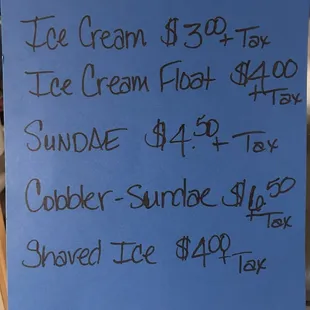 Ice Cream $3.00 + Tax
Ice Cream Float $4.00 + Tax
SUNDAE $4.50 + Tax
Cobbler-Sundae $6.50 + Tax
Shaved Ice $4.00 + Tax